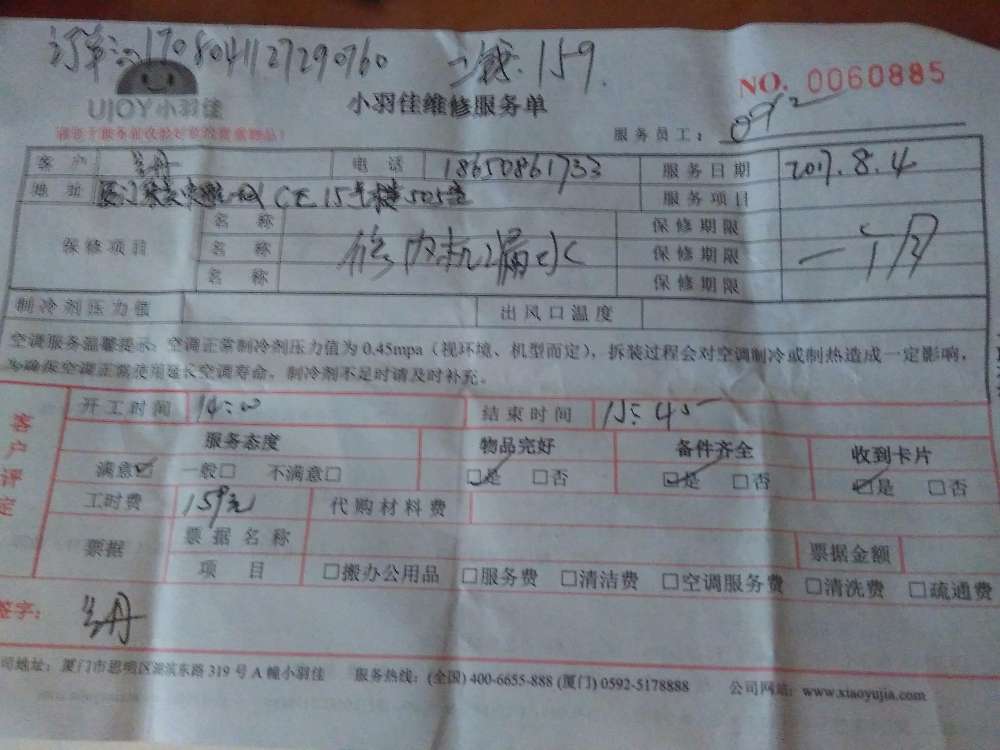 订单号1708041127290760 159.
NO. 0060885
UJOY小羽佳
小羽佳维修服务单
服务员工: 092
客户 电话 18650861733 服务日期 2017.8.4
地址 15号楼505室 服务项目
保修项目 名称 保修期限
名称 修内机漏水 保修期限 一个月
名称 保修期限
制冷剂压力值 出风口温度
空调服务温馨提示: 空调正常制冷剂压力值为 0.45mpa (视环境、机型而定), 拆装过程会对空调制冷或制热造成一定影响,
为确保空调正常使用延长空调寿命, 制冷剂不足时请及时补充。
客户评定
开工时间 14:00 结束时间 15:45
服务态度 物品完好 备件齐全 收到卡片
满意☑ 一般□ 不满意□ ☑是 □否 ☑是 □否 ☑是 □否
工时费 159元 代购材料费
票据 票据名称 票据金额
项目 □搬办公用品 □服务费 □清洁费 □空调服务费 □清洗费 □疏通费
签字: 丹
司地址: 厦门市思明区 东路 319 号 A 幢小羽佳 服务热线: (全国) 400-6655-888 (厦门) 0592-5178888 公司网站: www.xiaoyujia.com